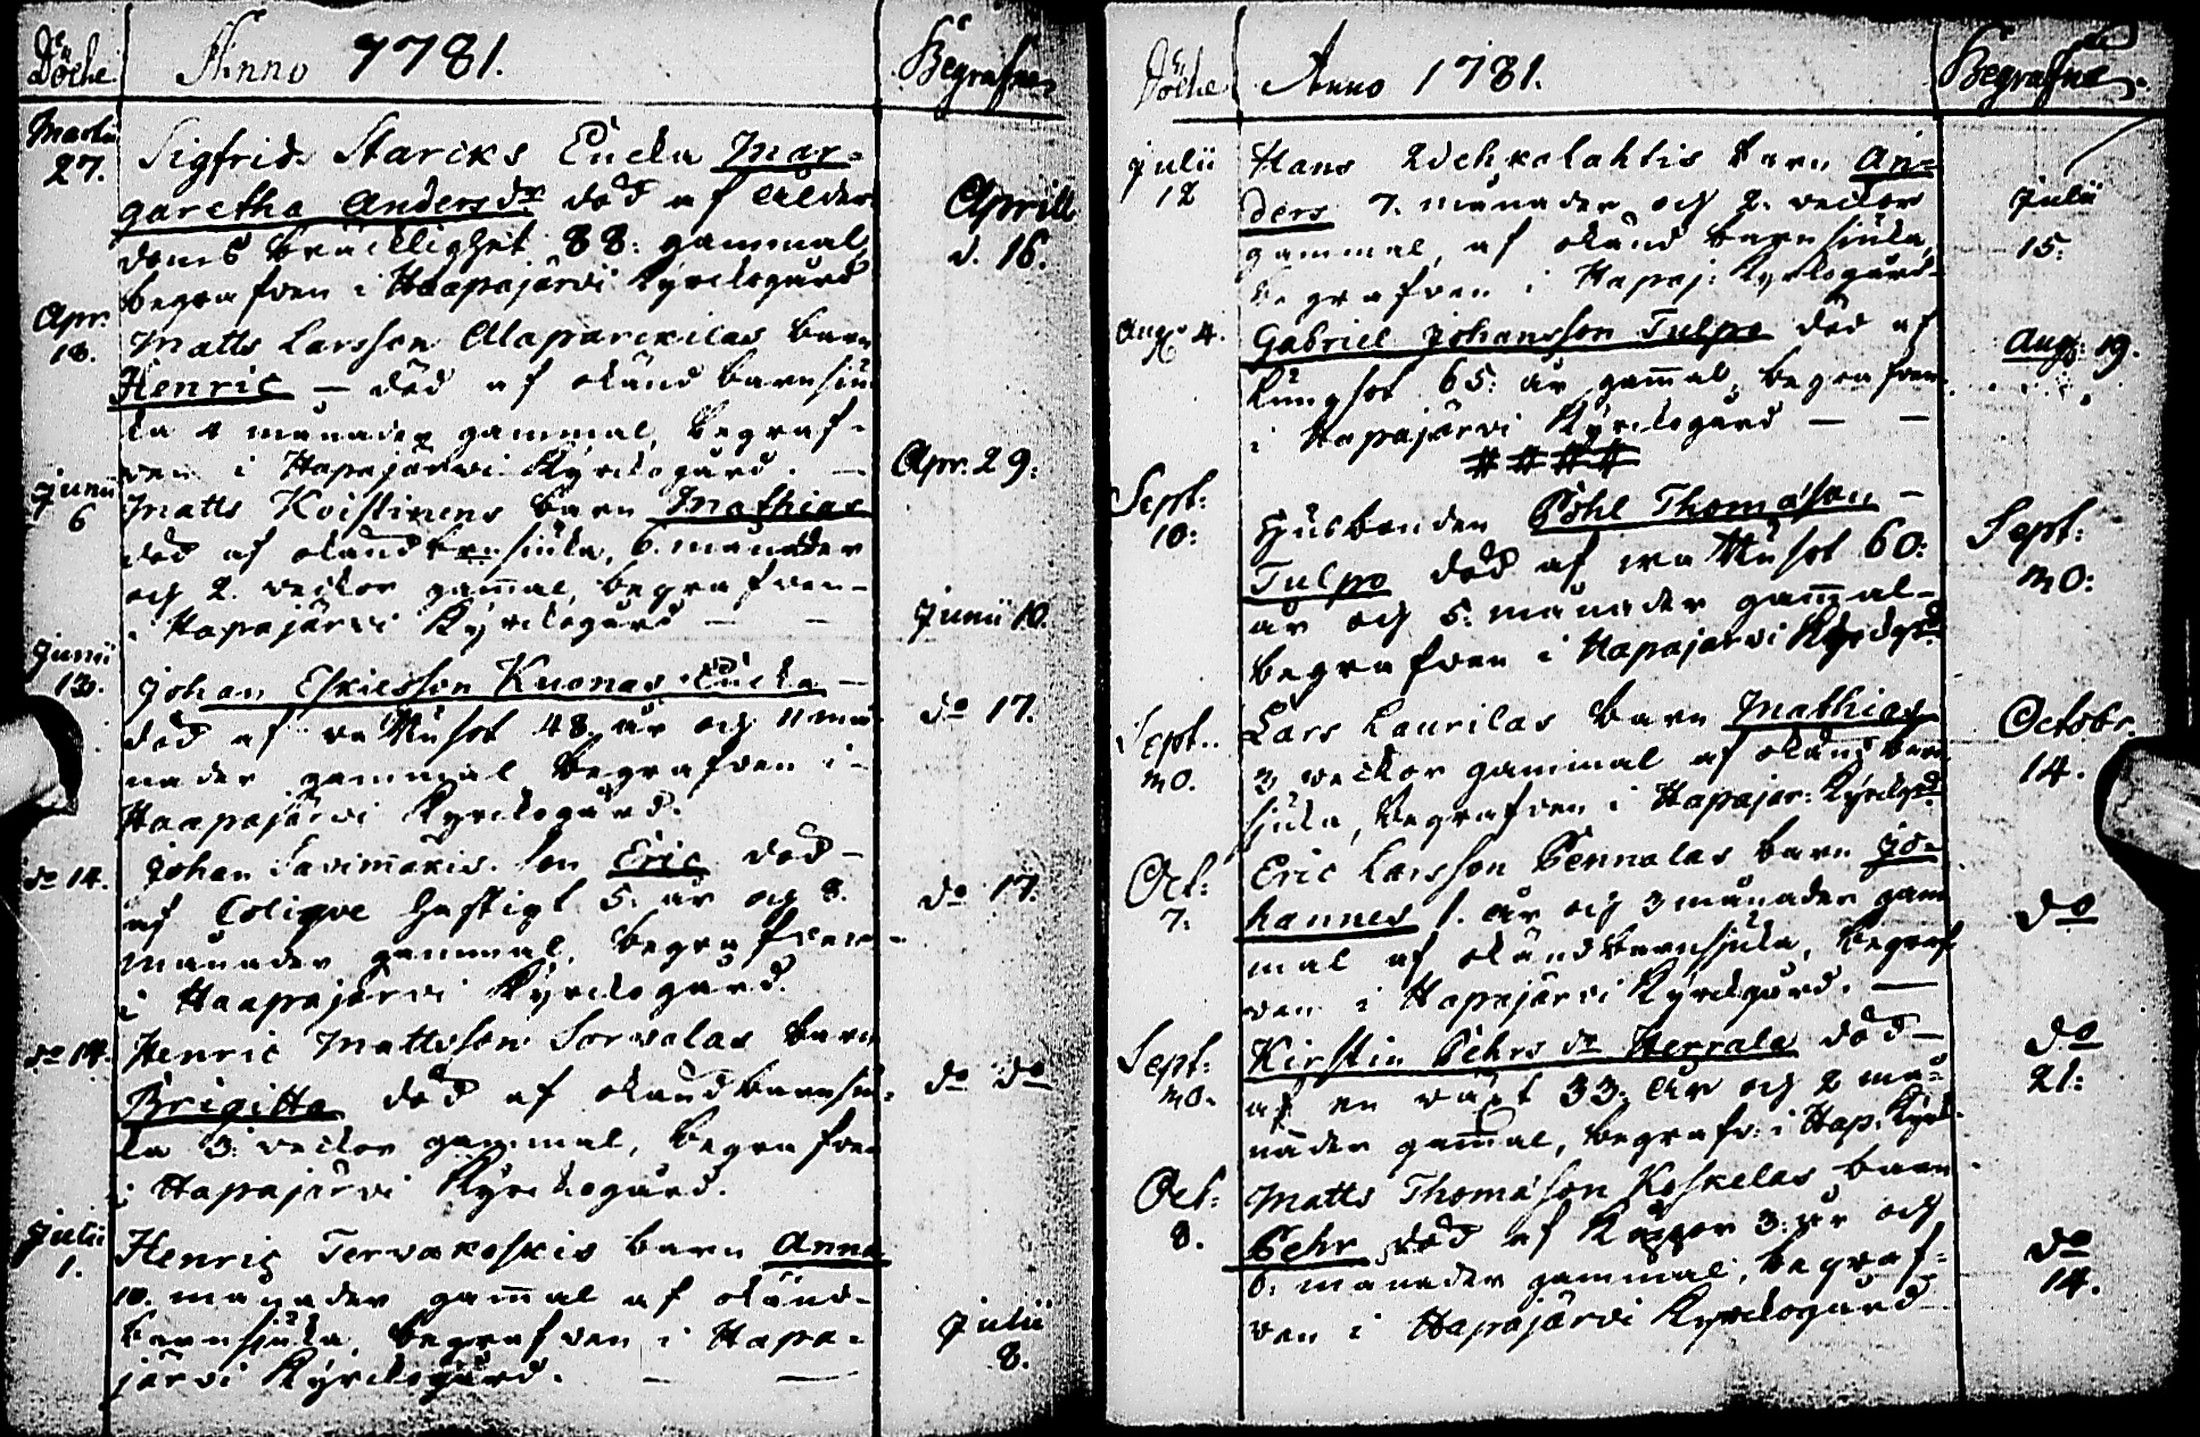 Döde Anno 1781. Begrafne
Martii 27. Sigfrids Starcks Encka Mar=
garetha Andersdr död af ålder
doms bräcklighet 88: gammal, Aprill d. 16.
begrafven i Haapajärvi Kyrckogård
Apr. 18. Matts Larsson Alaparckilas barn
Henric — död af okänd barnsiu
ka 4 månader gammal, begraf-
ven i Hapajärvi Kyrckogård. — Apr. 29:
Junii 6 Matts Koistinens barn Mathias
död af okänd barnsiuka, 6. månader
och 2. veckor gam̄al, begrafven-
i Hapajärvi Kyrckogård — — Junii 10.
Junii 13. Johan Eskilsson Kuonas Encka —
död af rötusot 48. år och 11 må- do 17.
nader gammal begrafven i-
Haapajärvi Kyrckogård.
do 14. Johan Savimäkis. son Eric död-
af Colique hastigt 5. år och 8. do 17.
månader gammal, begrafven-
i Haapajärvi Kyrckogård.
do 14. Henric Mattsson Sorvalas barn
Brigitta död af okänd barnsiu- do do
ka 3: veckor gammal, begrafven
i Hapajärvi Kyrckogård.
Julii 1. Henric Tervakoskis barn Anna
10. månader gam̄al af okänd-
barnsjuka, begrafven i Hapa- Julii 8.
järvi Kyrckogård. — —
Döde Anno 1781. Begrafne
Julii 12 Hans barn An=
ders 7. månader och 2. veckor Julii
gammal, af okänd barnsiuka, 15.
begrafven i Hapaj: Kyrkogård
Aug. 4. Gabriel Johansson Tulpo död af Aug: 19.
lungsot 65: år gam̄al, begrafven
i Hapajärvi Kyrckogård — —
# # # #
Sept: 10: Husbonden Påhl Thomasson —
Tulpo död af 60: Sept: 30:
år och 5. månader gam̄al-
begrafven i Hapajärvi
Sept.. 30. Lars Laurilas barn Mathias Octobr.
3 veckor gammal af okänd barn 14.
sjuka, begrafven i Hapajär: Kyrckgd
Oct: 7. Eric Larsson Pennalas barn Jo-
hannes 1. år och 3 månader gam do
mal af okänd barnsjuka, begraf
ven i Hapajärvi Kyrckgård. —
Sept: 30. Kirstin Pehrs dr Herrala död — do
af en växt 33: år och 2 må= 21:
nader gam̄al, begrafv: i Hap. Kyrk.
Oct: 8. Matts Thomasson Koskelas barn
Pehr död af Koppor 3: år och
6: månader gammal, begraf= do
ven i Hapajärvi Kyrckogård 14.